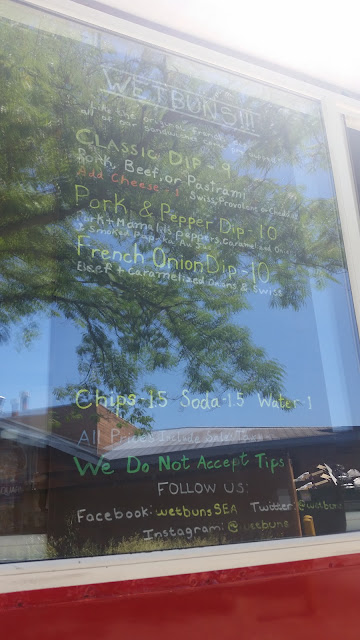 WETBUNS!!!
Like the original French
all of our sandwiches come
Classic Dip - 9
Pork, Beef, or Pastrami
Add Cheese - 1 Swiss, Provolone or Chedd
Pork & Pepper Dip - 10
Pork + Mama Lil's Peppers, Caramelized On
& Smoked Paprika Au Jus
French Onion Dip - 10
Beef + Caramelized Onions & Swiss
Chips - 1.5 Soda - 1.5 Water - 1
All Prices Include Sales Tax
We Do Not Accept Tips
FOLLOW US:
Facebook: wetbunsSEA Twitter: @wetbuns
Instagram: @wetbuns